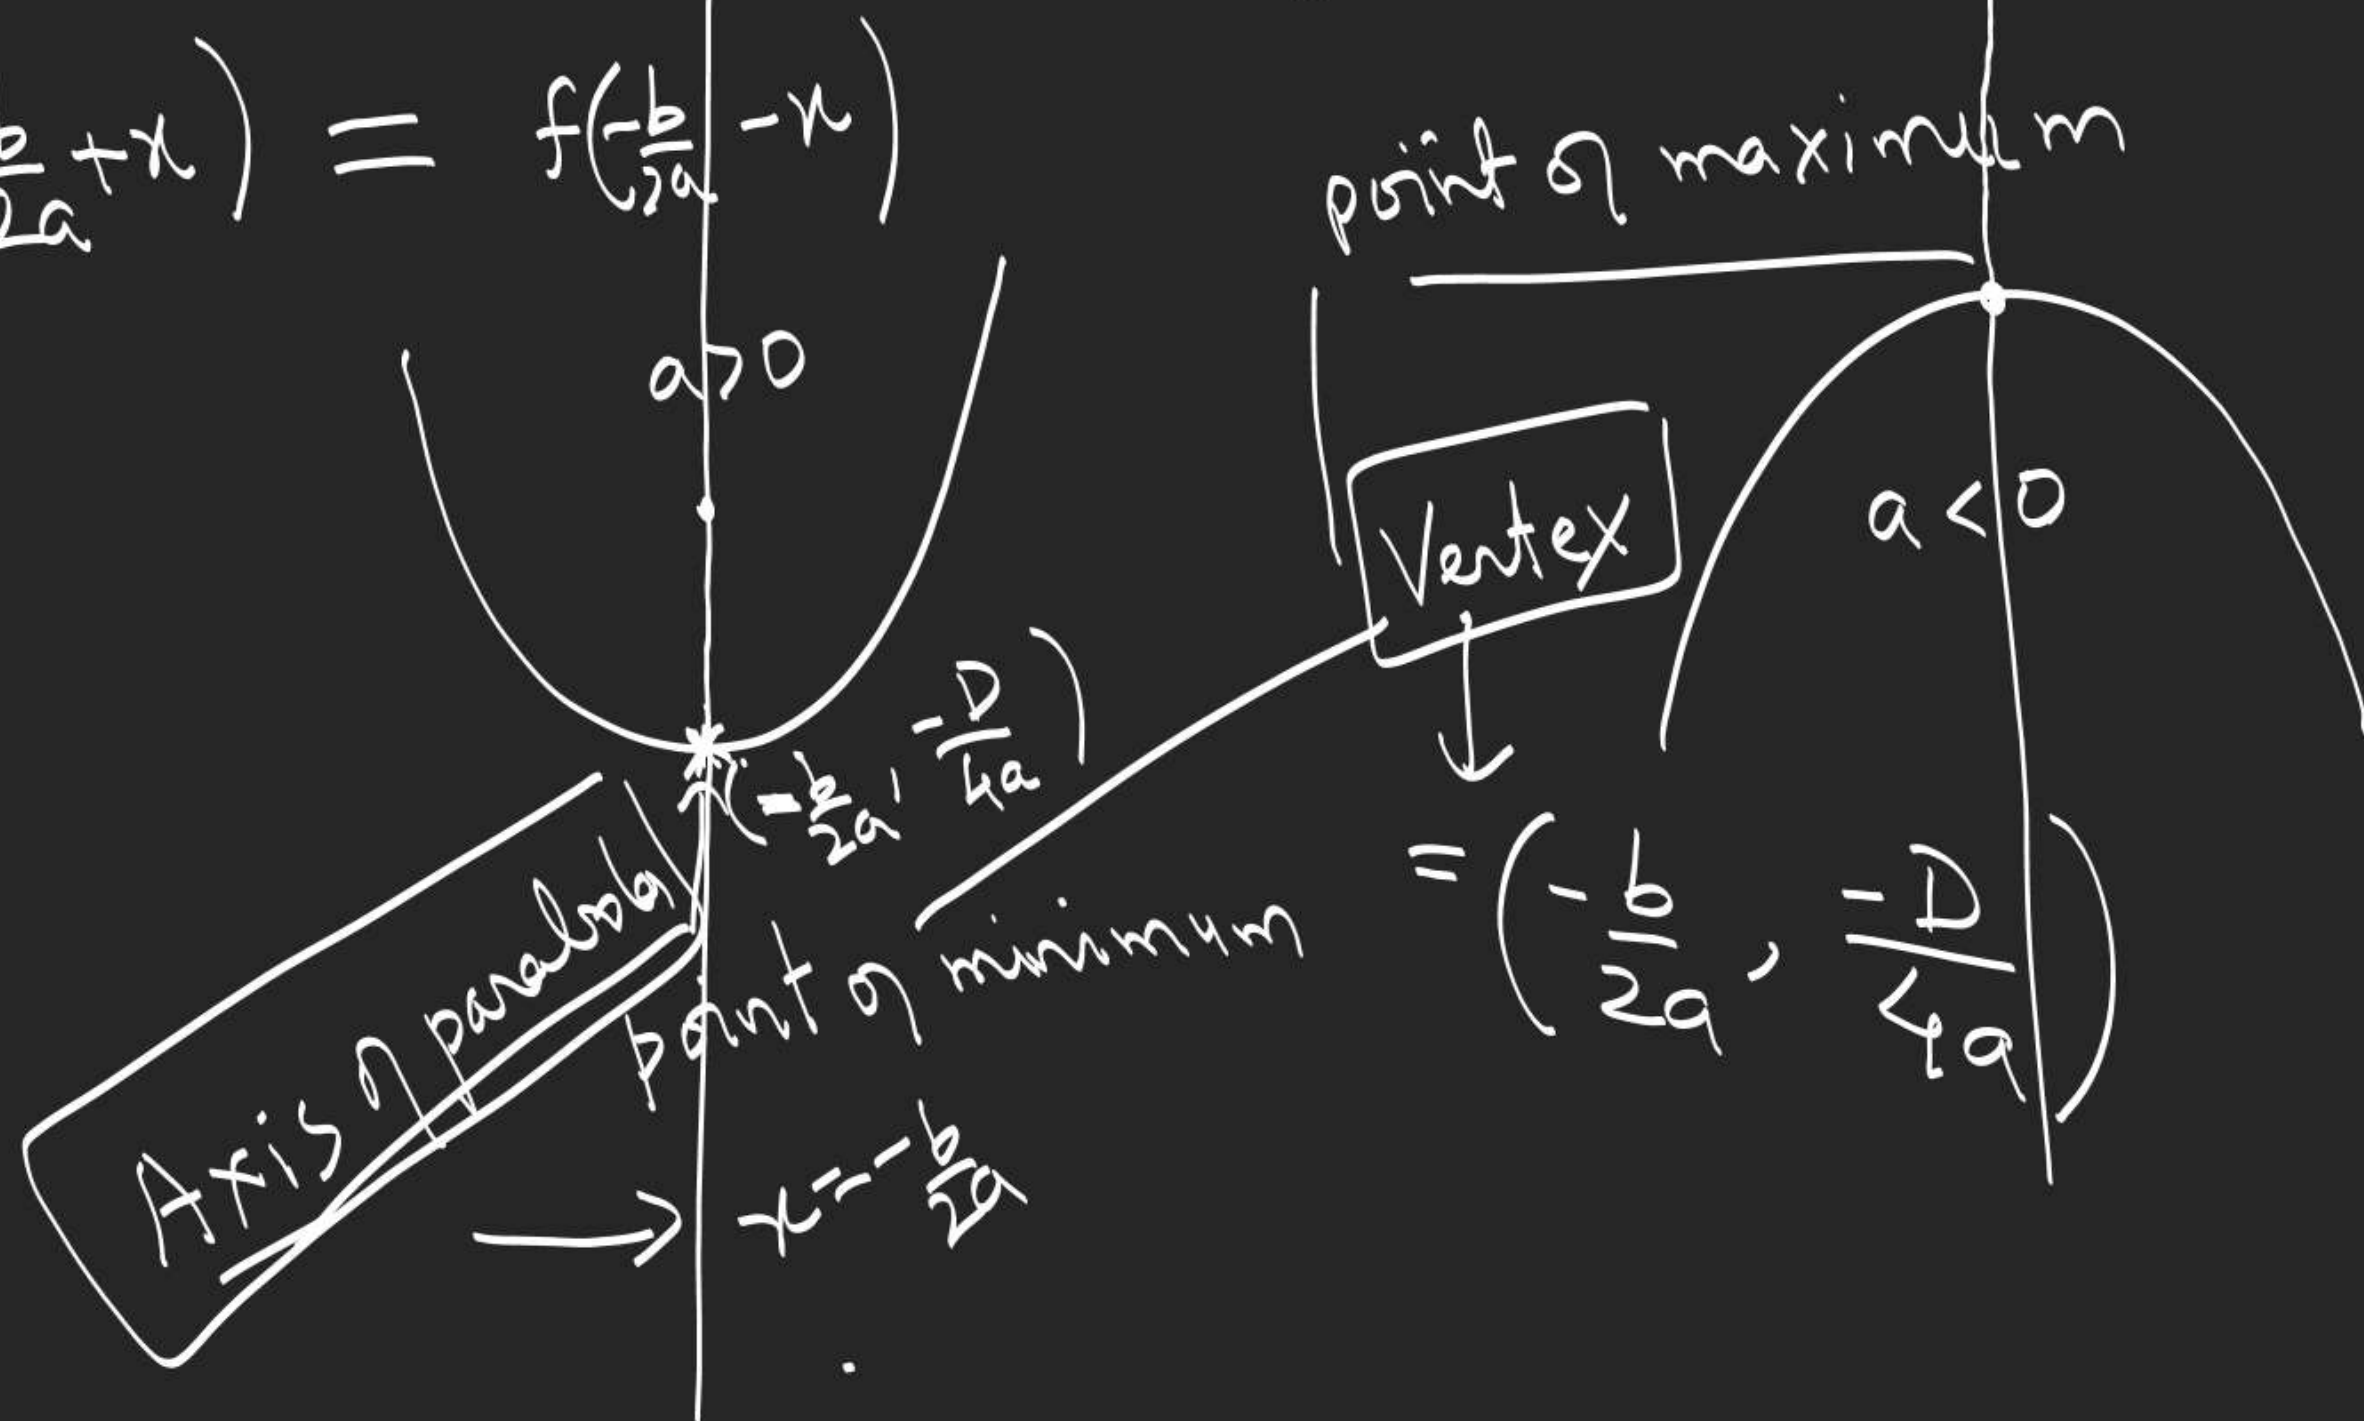 b/2a + x) = f(-b/2a - x)
point of maximum
a > 0
a < 0
Vertex
(-b/2a, -D/4a)
= (-b/2a, -D/4a)
Axis of parabola
point of minimum
x = -b/2a